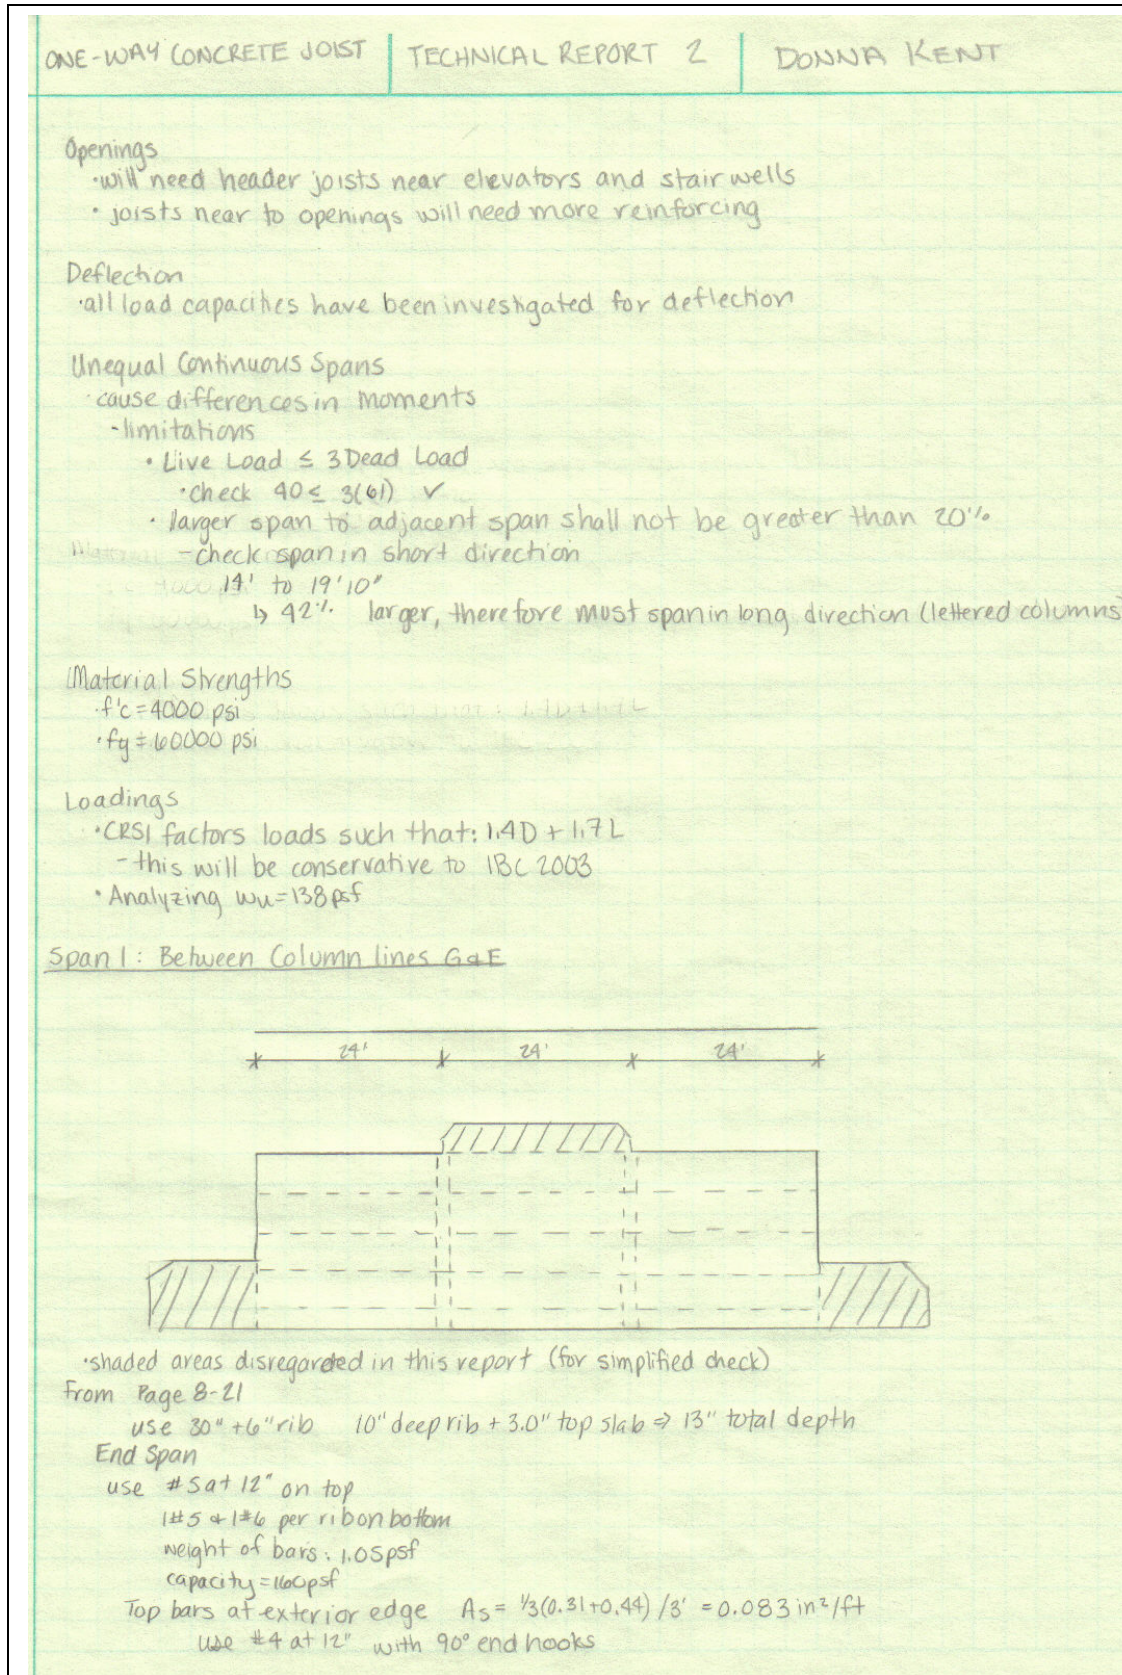 ONE-WAY CONCRETE JOIST TECHNICAL REPORT 2 DONNA KENT
Openings
·will need header joists near elevators and stair wells
· joists near to openings will need more reinforcing
Deflection
·all load capacities have been investigated for deflection
Unequal Continuous Spans
·cause differences in moments
-limitations
• Live Load ≤ 3 Dead Load
·check 40 ≤ 3(61) ✓
· larger span to adjacent span shall not be greater than 20%
-check span in short direction
14' to 19'10"
↳ 42% larger, therefore must span in long direction (lettered columns)
Material Strengths
·f'c = 4000 psi
·fy = 60000 psi
Loadings
·CRSI factors loads such that: 1.4D + 1.7L
- this will be conservative to IBC 2003
• Analyzing wu=138psf
Span 1: Between Column lines G & E
24' 24' 24'
·shaded areas disregarded in this report (for simplified check)
From Page 8-21
use 30" + 6" rib 10" deep rib + 3.0" top slab ⇒ 13" total depth
End Span
use #5 at 12" on top
1#5 & 1#6 per rib on bottom
weight of bars: 1.05psf
capacity = 160psf
Top bars at exterior edge As = 1/3(0.31+0.44)/3' = 0.083 in²/ft
use #4 at 12" with 90° end hooks